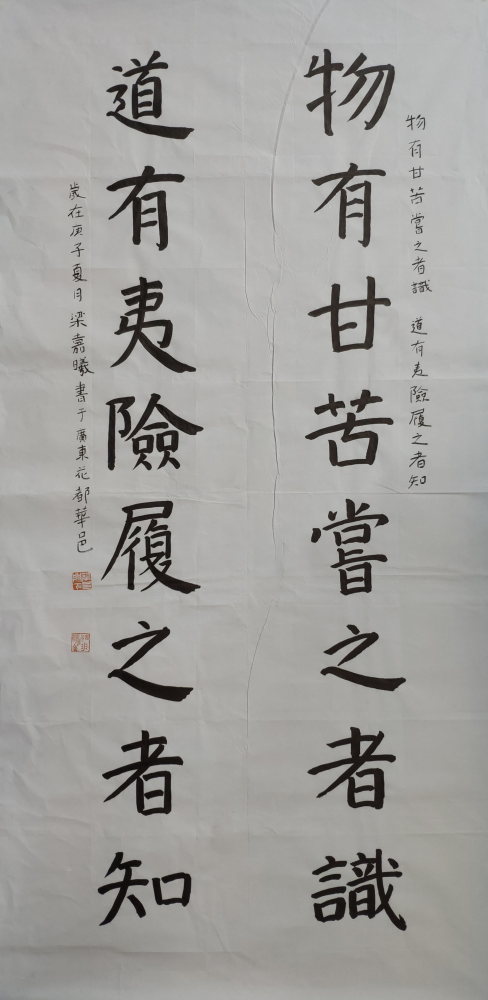 物有甘苦嘗之者識 道有夷險履之者知
物有甘苦嘗之者識
道有夷險履之者知
歲在庚子夏月梁嘉曦書于廣東花都華邑